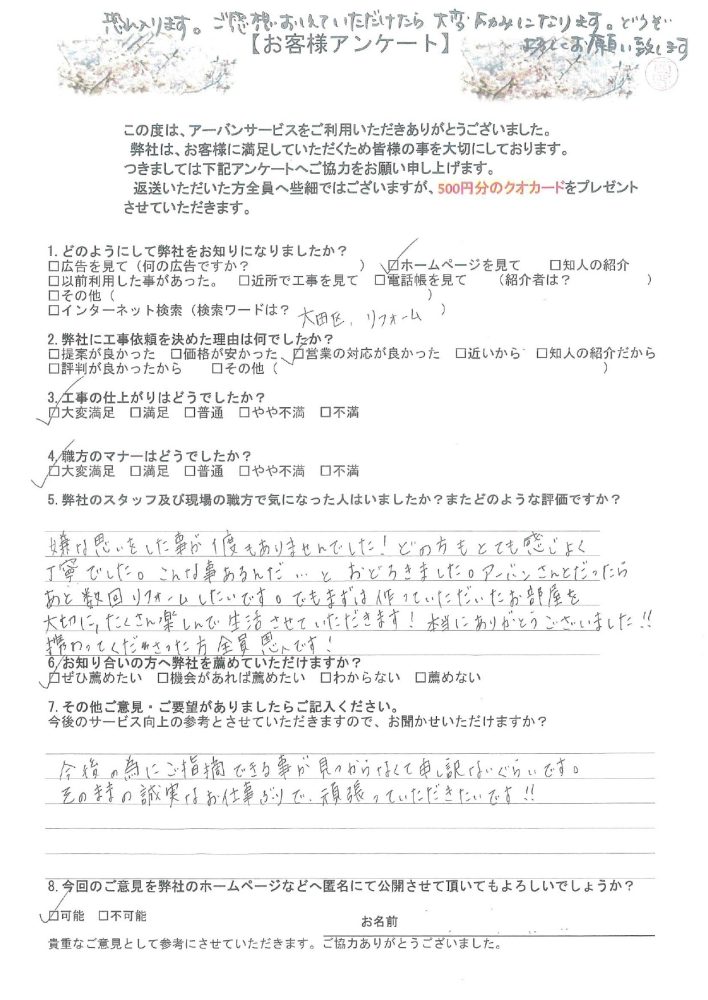 恐れ入ります。ご感想おしえていただけたら大変励みになります。どうぞ
【お客様アンケート】
お願い致します
この度は、アーバンサービスをご利用いただきありがとうございました。
弊社は、お客様に満足していただくため皆様の事を大切にしております。
つきましては下記アンケートへご協力をお願い申し上げます。
返送いただいた方全員へ些細ではございますが、500円分のクオカードをプレゼント
させていただきます。
1.どのようにして弊社をお知りになりましたか？
□広告を見て（何の広告ですか？ ） □ホームページを見て □知人の紹介
□以前利用した事があった。 □近所で工事を見て □電話帳を見て （紹介者は？ ）
□その他（ ）
□インターネット検索（検索ワードは？ 大田区、リフォーム ）
2.弊社に工事依頼を決めた理由は何でしたか？
□提案が良かった □価格が安かった □営業の対応が良かった □近いから □知人の紹介だから
□評判が良かったから □その他（ ）
3.工事の仕上がりはどうでしたか？
□大変満足 □満足 □普通 □やや不満 □不満
4.職方のマナーはどうでしたか？
□大変満足 □満足 □普通 □やや不満 □不満
5.弊社のスタッフ及び現場の職方で気になった人はいましたか？またどのような評価ですか？
嫌な思いをした事が1度もありませんでした！どの方もとても感じよく
丁寧でした。こんな事あるんだ…と おどろきました。アーバンさんとだったら
あと数回リフォームしたいです。でもまずは作っていただいたお部屋を
大切に、たくさん楽しんで生活させていただきます！本当にありがとうございました!!
携わってくださった方全員恩人です！
6.お知り合いの方へ弊社を薦めていただけますか？
□ぜひ薦めたい □機会があれば薦めたい □わからない □薦めない
7.その他ご意見・ご要望がありましたらご記入ください。
今後のサービス向上の参考とさせていただきますので、お聞かせいただけますか？
今後の為にご指摘できる事が見つからなくて申し訳ないぐらいです。
そのままの誠実なお仕事ぶりで、頑張っていただきたいです!!
8.今回のご意見を弊社のホームページなどへ匿名にて公開させて頂いてもよろしいでしょうか？
□可能 □不可能
お名前
貴重なご意見として参考にさせていただきます。ご協力ありがとうございました。